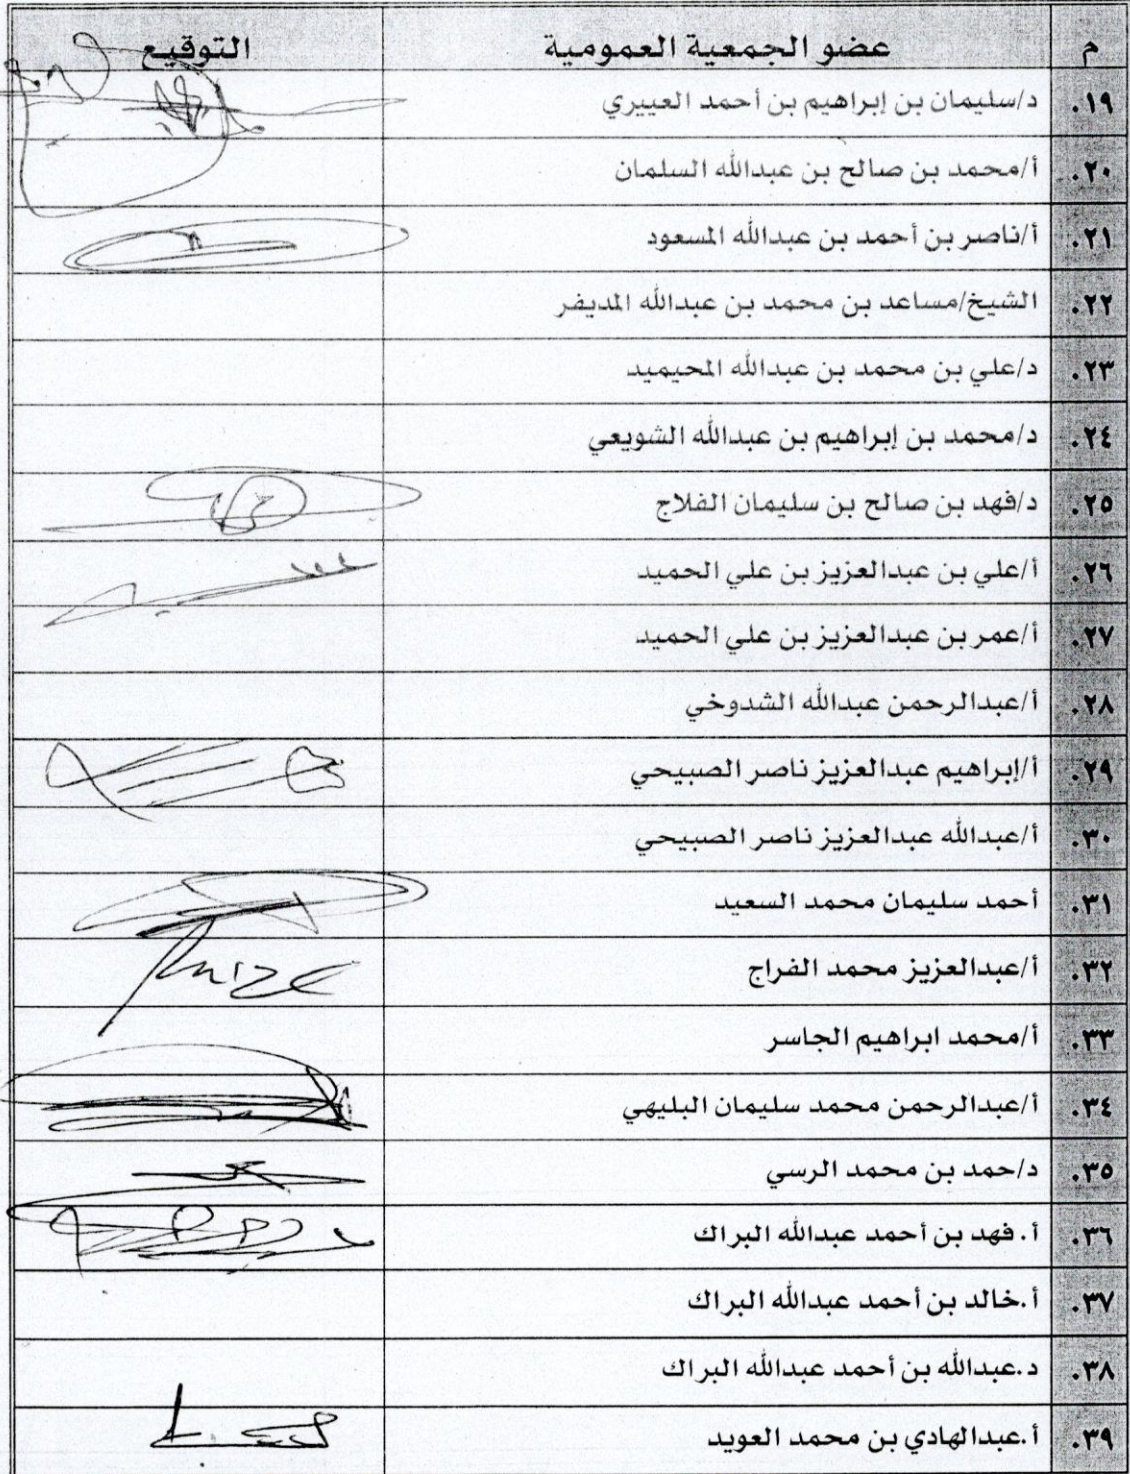 م عضو الجمعية العمومية التوقيع
.١٩ د/سليمان بن إبراهيم بن أحمد العييري
.٢٠ أ/محمد بن صالح بن عبدالله السلمان
.٢١ أ/ناصر بن أحمد بن عبدالله المسعود
.٢٢ الشيخ/مساعد بن محمد بن عبدالله المديفر
.٢٣ د/علي بن محمد بن عبدالله المحيميد
.٢٤ د/محمد بن إبراهيم بن عبدالله الشويعي
.٢٥ د/فهد بن صالح بن سليمان الفلاج
.٢٦ أ/علي بن عبدالعزيز بن علي الحميد
.٢٧ أ/عمر بن عبدالعزيز بن علي الحميد
.٢٨ أ/عبدالرحمن عبدالله الشدوخي
.٢٩ أ/إبراهيم عبدالعزيز ناصر الصبيحي
.٣٠ أ/عبدالله عبدالعزيز ناصر الصبيحي
.٣١ أحمد سليمان محمد السعيد
.٣٢ أ/عبدالعزيز محمد الفراج
.٣٣ أ/محمد ابراهيم الجاسر
.٣٤ أ/عبدالرحمن محمد سليمان البليهي
.٣٥ د/حمد بن محمد الرسي
.٣٦ أ. فهد بن أحمد عبدالله البراك
.٣٧ أ.خالد بن أحمد عبدالله البراك
.٣٨ د.عبدالله بن أحمد عبدالله البراك
.٣٩ أ.عبدالهادي بن محمد العويد